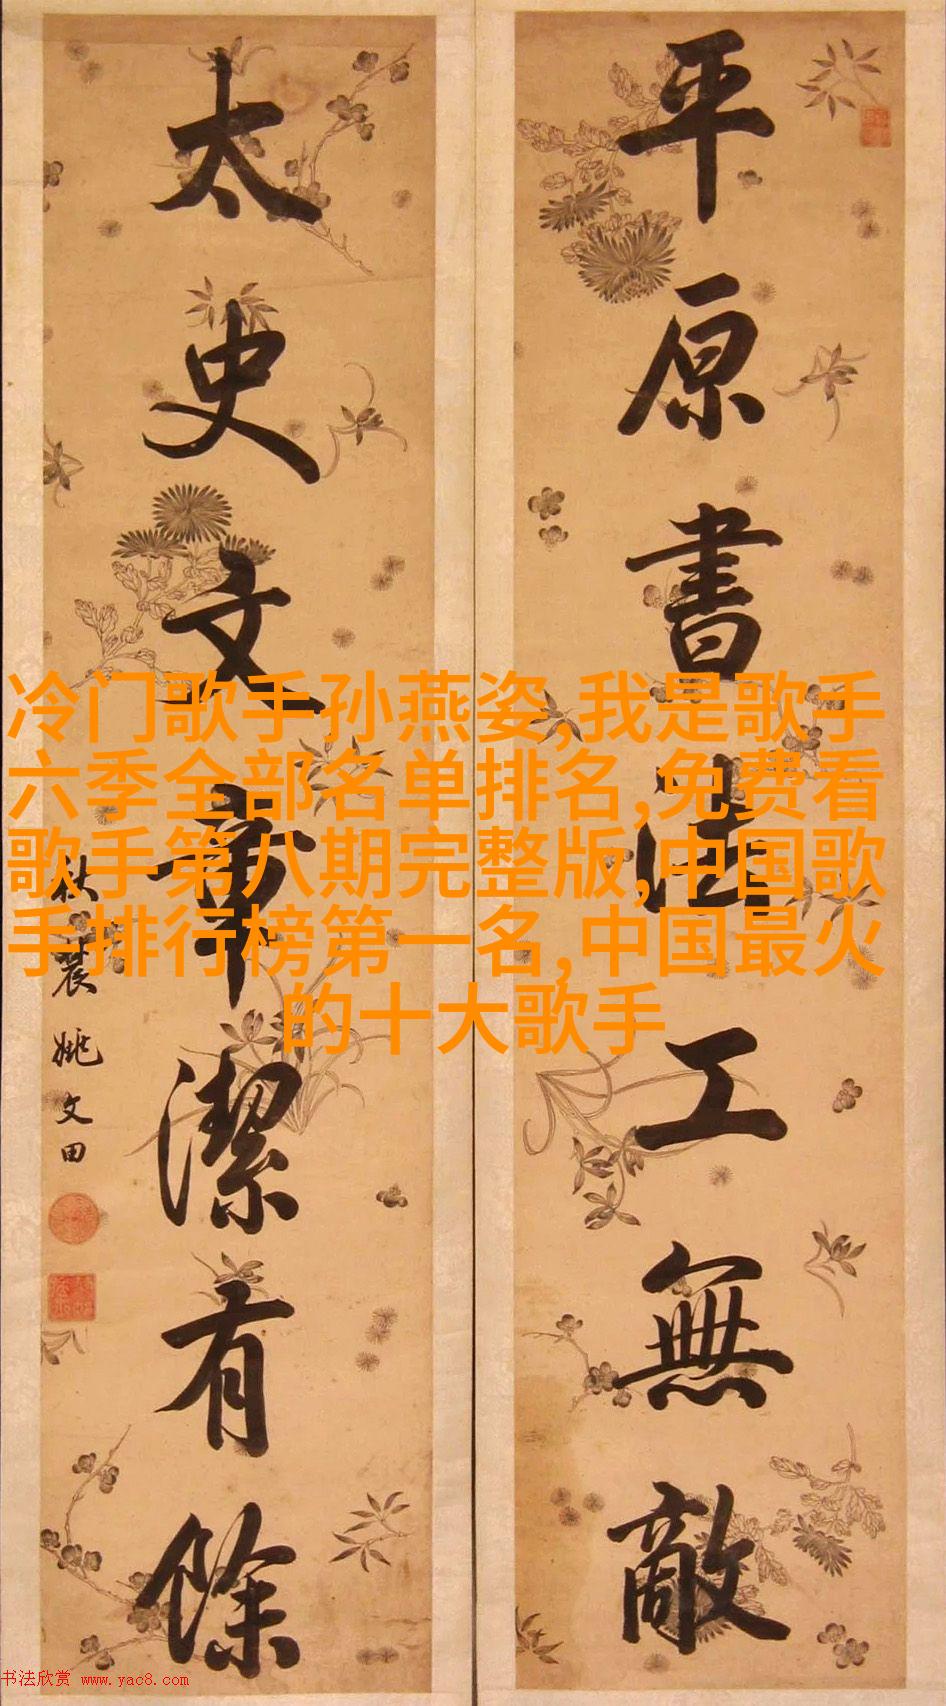 平原書法工無敵
太史文章潔有餘
秋農姚文田
冷门歌手孙燕姿,我是歌手
六季全部名单排名,免费看
歌手第八期完整版,中国歌
手排行榜第一名,中国最火
的十大歌手
书法欣赏 www.yac8.com